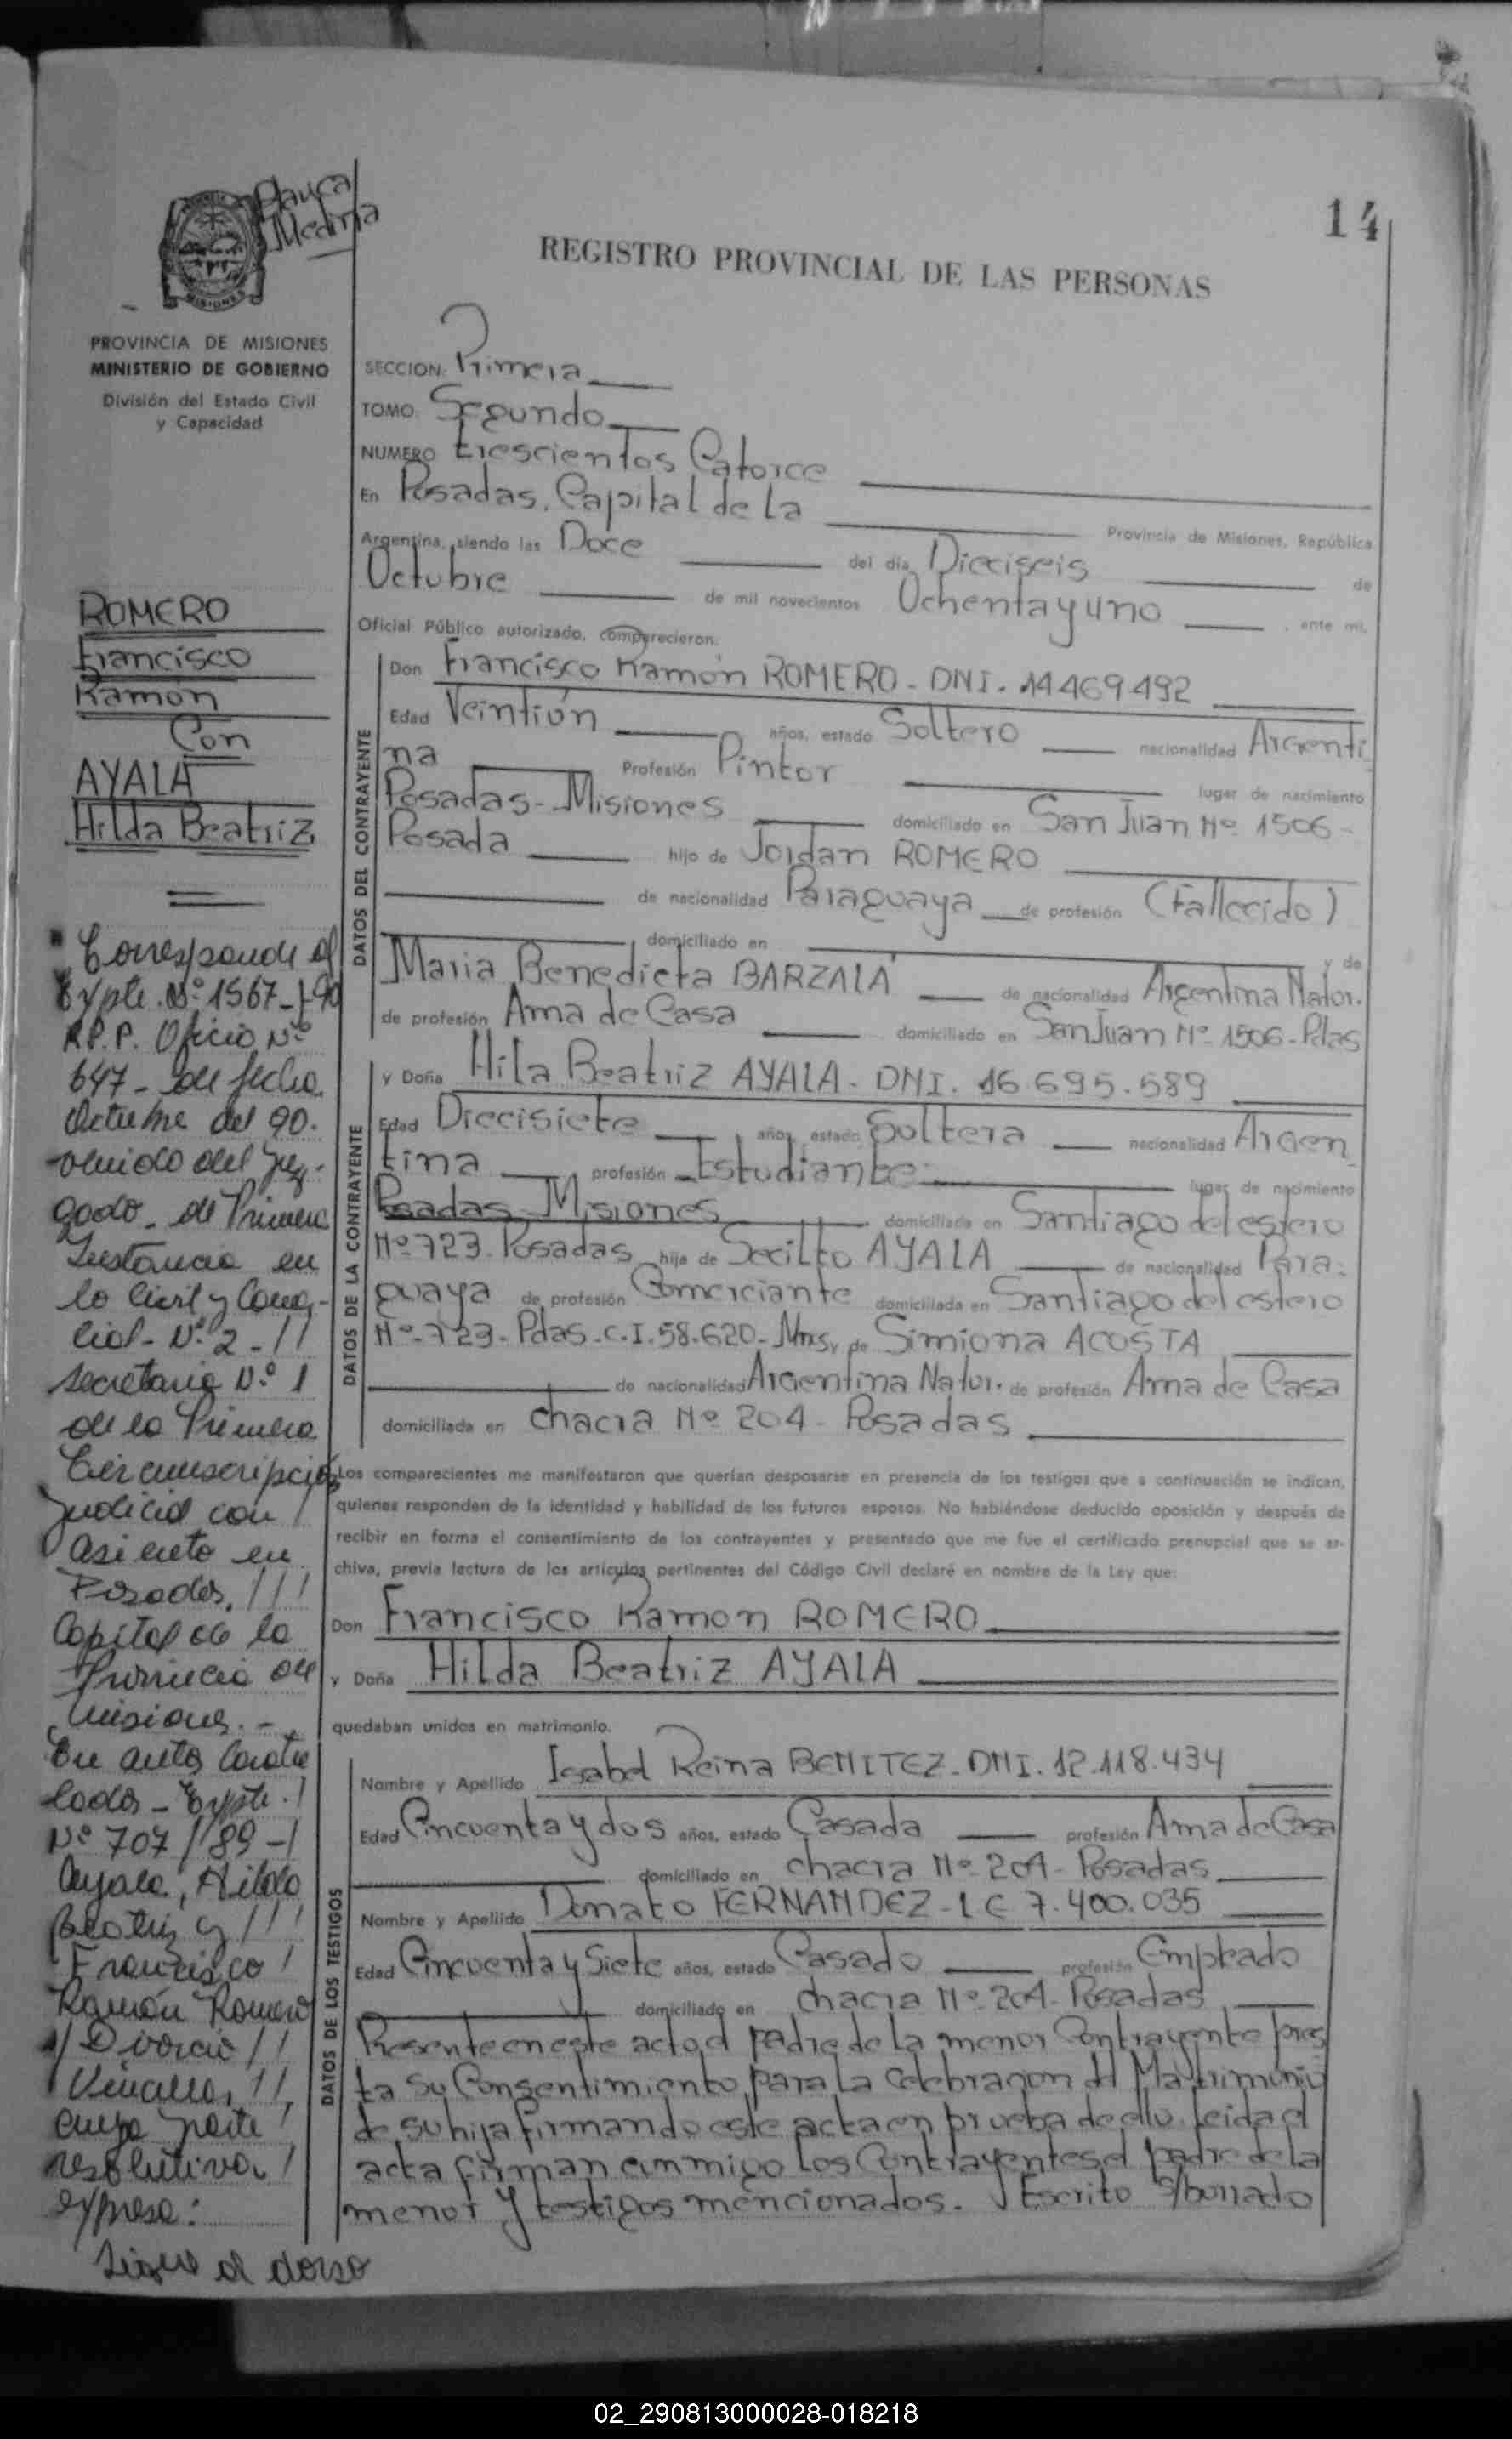 14
Medina
REGISTRO PROVINCIAL DE LAS PERSONAS
MISIONES
PROVINCIA DE MISIONES
MINISTERIO DE GOBIERNO
División del Estado Civil
y Capacidad
ROMERO
Francisco
Ramón
Con
AYALA
Hilda Beatriz
Corresponde al
Expte. Nº 1567-90
R.P.P. Oficio Nº
647- de fecha
Octubre del 90.
del Juz-
gado de Primera
Instancia en
lo Civil y Comer-
cial- Nº 2-//
Secretaria Nº 1
de la Primera
Circunscripción
Judicial con /
asiento en
Posadas, ///
Capital de la
Provincia de
Misiones.-
En autos Caratu
lados- Expte. /
Nº 707/89-/
Ayala, Hilda
Beatriz y ///
Francisco /
Ramón Romero
s/ Divorcio //
Vincular, //
cuya parte /
resolutiva /
expresa:
Sigue al dorso
SECCION: Primera
TOMO: Segundo
NUMERO trescientos Catorce
En Posadas, Capital de La Provincia de Misiones, República
Argentina, siendo las Doce del día Dieciseis de
Octubre de mil novecientos Ochenta y uno, ante mí,
Oficial Público autorizado, comparecieron:
DATOS DEL CONTRAYENTE
Don Francisco Ramón ROMERO- DNI. 14469492
Edad Veintiún años, estado Soltero nacionalidad Argenti
na Profesión Pintor lugar de nacimiento
Posadas- Misiones domiciliado en San Juan Nº 1506-
Posada hijo de Jordan ROMERO
de nacionalidad Paraguaya de profesión (Fallecido)
domiciliado en y de
Maria Benedicta BARZALA de nacionalidad Argentina Nator.
de profesión Ama de Casa domiciliado en San Juan Nº 1506- Pdas
DATOS DE LA CONTRAYENTE
y Doña Hila Beatriz AYALA- DNI. 16 695.589
Edad Diecisiete años, estado Soltera nacionalidad Argen
tina profesión Estudiante lugar de nacimiento
Posadas Misiones domiciliada en Santiago del estero
Nº 723. Posadas hija de Secilto AYALA de nacionalidad Para-
guaya de profesión Comerciante domiciliada en Santiago del estero
Nº-723-Pdas-C.I.58.620-Mns, y de Simiona ACOSTA
de nacionalidad Argentina Natur. de profesión Ama de Casa
domiciliada en chacra Nº 204- Posadas
Los comparecientes me manifestaron que querían desposarse en presencia de los testigos que a continuación se indican,
quienes responden de la identidad y habilidad de los futuros esposos. No habiéndose deducido oposición y después de
recibir en forma el consentimiento de los contrayentes y presentado que me fue el certificado prenupcial que se ar-
chiva, previa lectura de los artículos pertinentes del Código Civil declaré en nombre de la Ley que:
Don Francisco Ramon ROMERO
y Doña Hilda Beatriz AYALA
quedaban unidos en matrimonio.
DATOS DE LOS TESTIGOS
Nombre y Apellido Isabel Reina BENITEZ- DNI. 12.118.434
Edad Cincuenta y dos años, estado Casada profesión Ama de Casa
domiciliado en chacra Nº 204- Posadas
Nombre y Apellido Donato FERNANDEZ- LE 7.400.035
Edad Cincuenta y Siete años, estado Casado profesión Empleado
domiciliado en chacra Nº 204- Posadas
Presente en este acto el padre de la menor Contrayente pres
ta su Consentimiento para la celebracion del Matrimonio
de su hija firmando este acta en prueba de ello. leida el
acta firman conmigo los Contrayentes el padre de la
menor y testigos mencionados. Escrito s/borrado
02_290813000028-018218